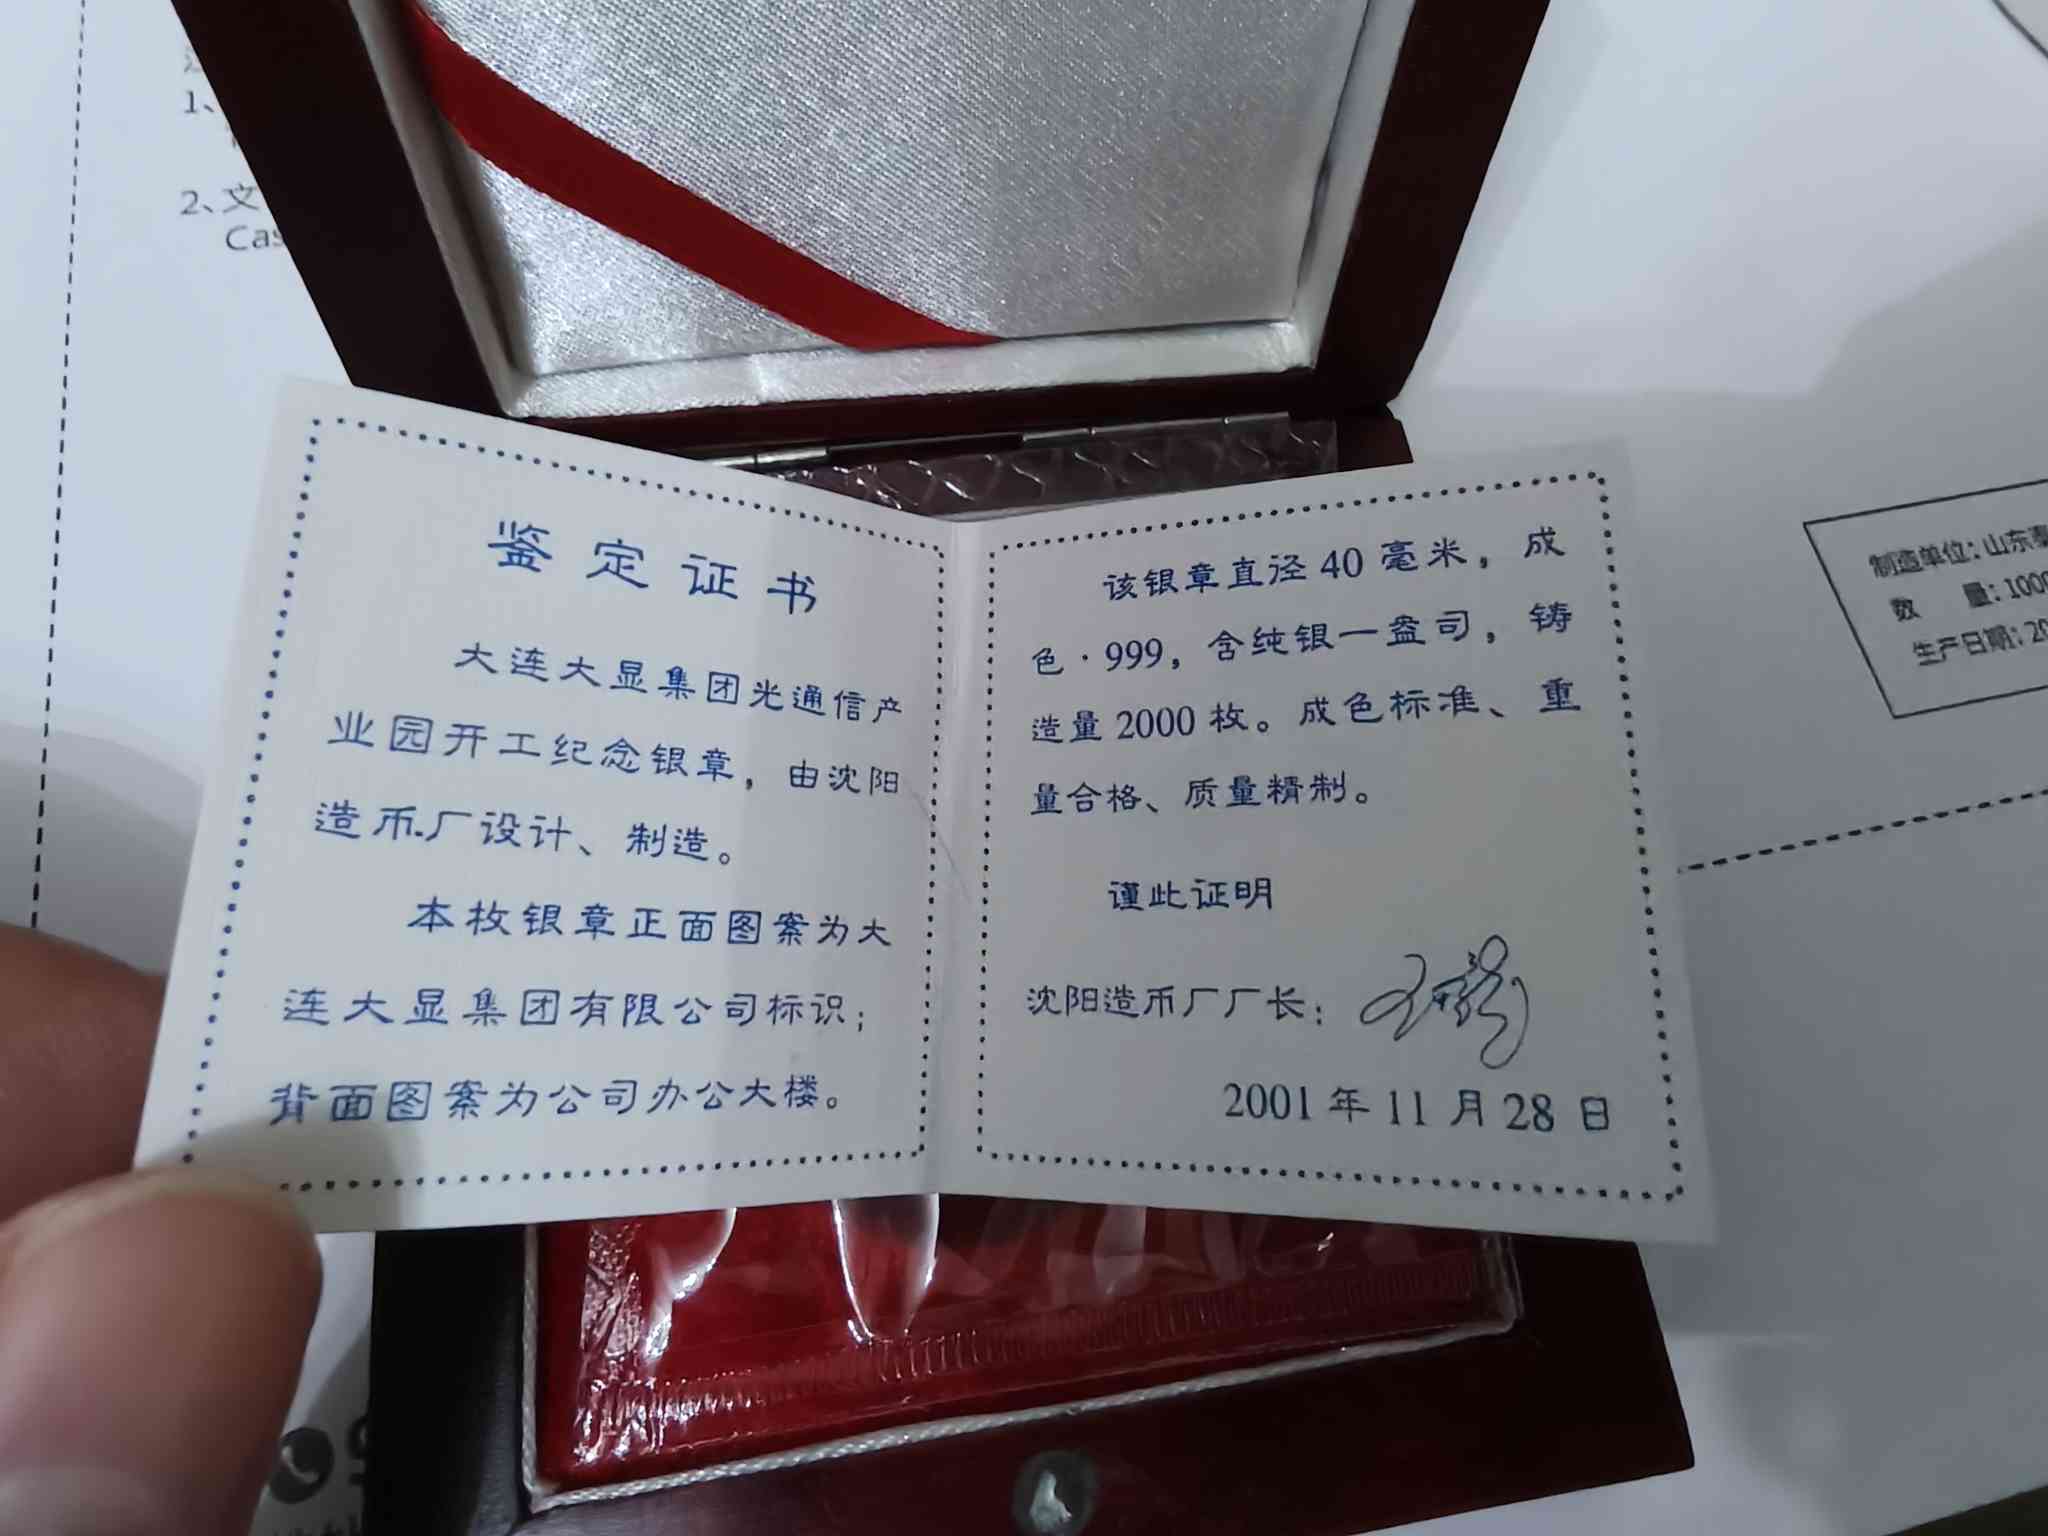 1、
2、文
Cas
鉴定证书
大连大显集团光通信产
业园开工纪念银章，由沈阳
造币厂设计、制造。
本枚银章正面图案为大
连大显集团有限公司标识；
背面图案为公司办公大楼。
该银章直径40毫米，成
色·999，含纯银一盎司，铸
造量2000枚。成色标准、重
量合格、质量精制。
谨此证明
沈阳造币厂厂长：
2001年11月28日
制造单位：山东泰
数 量：1000
生产日期：20